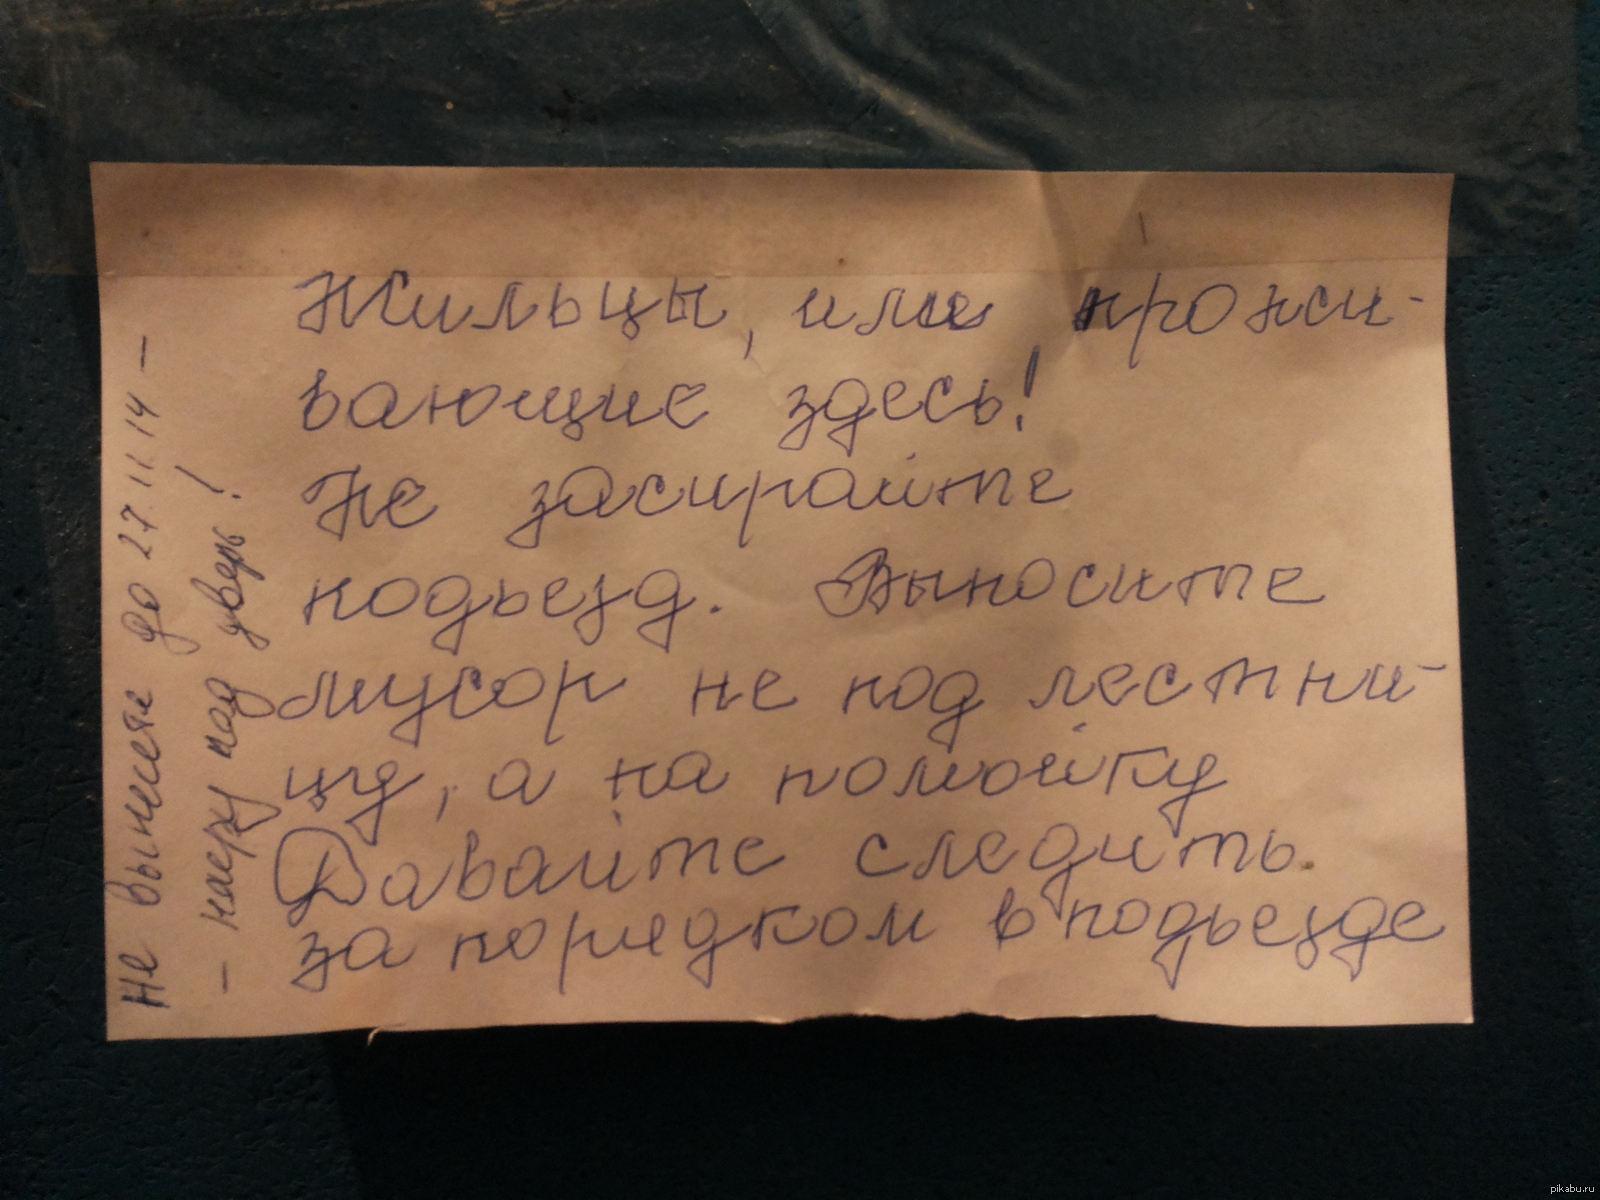 Жильцы, или прожи-
вающие здесь!
Не засирайте
подъезд. Выносите
мусор не под лестни-
цу, а на помойку
Давайте следить
за порядком в подъезде
Не вынесете до 27.11.14 –
– насру под дверь!
pikabu.ru